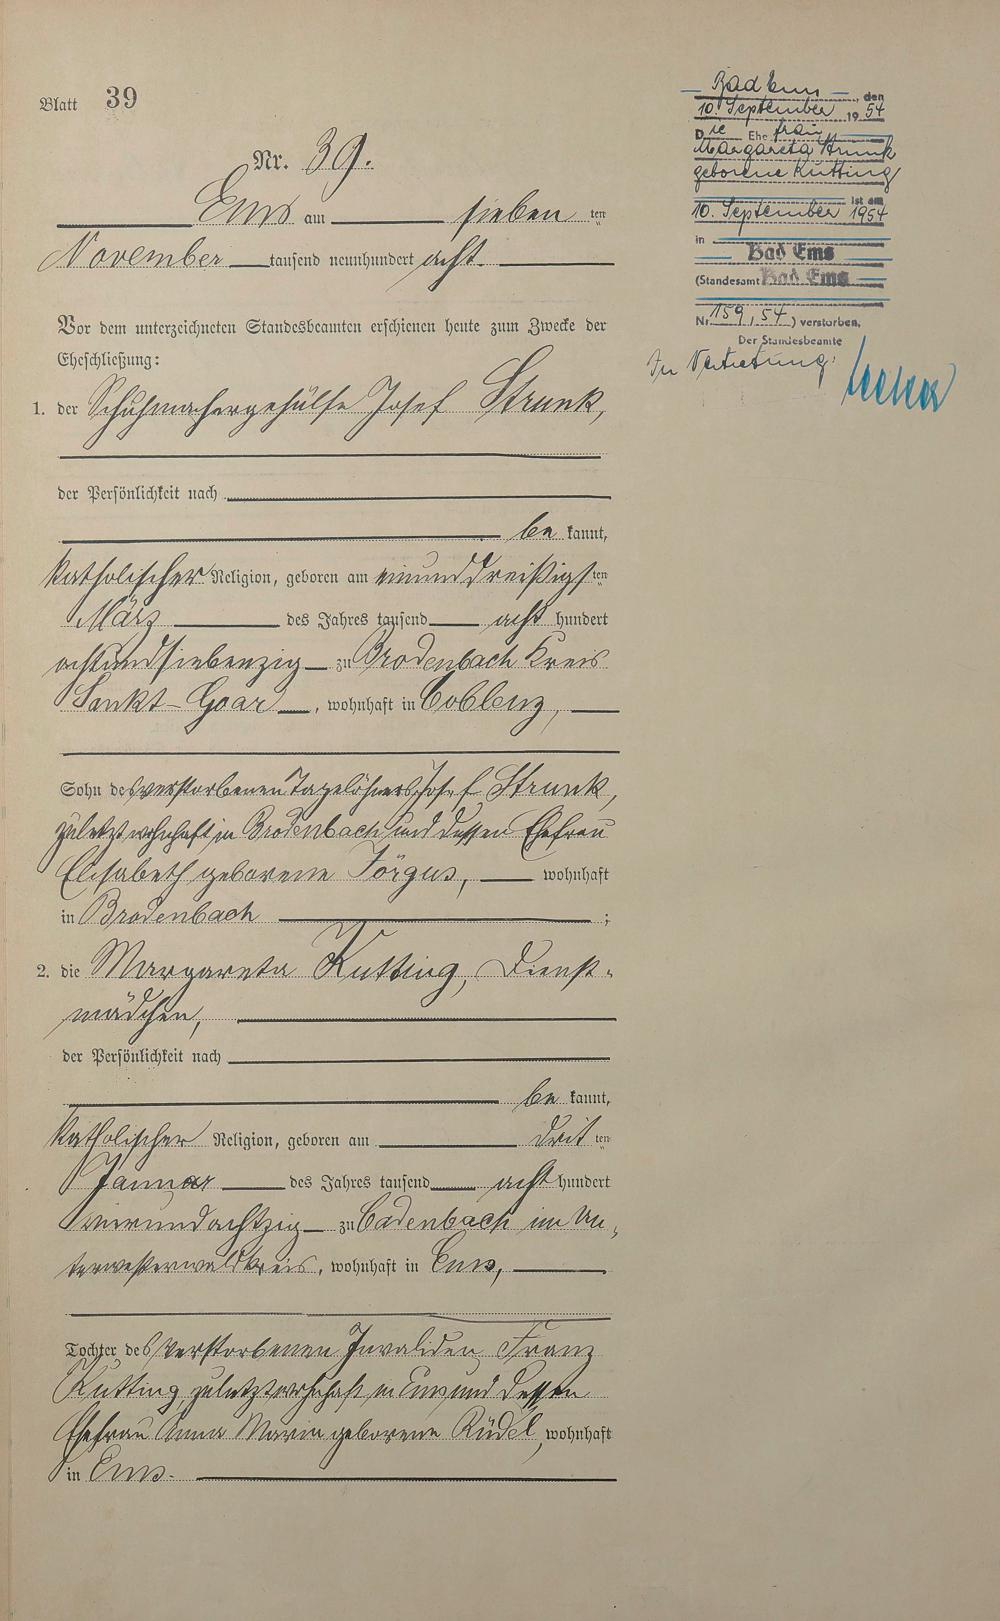 Blatt 39
Nr. 39.
Ems am sieben ten
November tausend neunhundert acht
Vor dem unterzeichneten Standesbeamten erschienen heute zum Zwecke der
Eheschließung:
1. der Schuhmachergehülfe Josef Strunk,
der Persönlichkeit nach
be kannt,
katholischer Religion, geboren am einunddreißigsten
März des Jahres tausend acht hundert
achtundsiebenzig zu Brodenbach Kreis
Sankt-Goar, wohnhaft in Coblenz,
Sohn des verstorbenen Tagelöhners Josef Strunk,
zuletzt wohnhaft in Brodenbach und dessen Ehefrau
Elisabeth geborene Törgus, wohnhaft
in Brodenbach ;
2. die Margareta Kutting, Dienst-
mädchen,
der Persönlichkeit nach
be kannt,
katholischer Religion, geboren am drit ten
Januar des Jahres tausend acht hundert
vierundachtzig zu Cadenbach im Un-
terwesterwaldkreis, wohnhaft in Ems,
Tochter des verstorbenen Invaliden Franz
Kutting, zuletzt wohnhaft in Ems und dessen
Ehefrau Anna Maria geborene Rüdel, wohnhaft
in Ems.
Bad Ems, den
10. September 1954
Die Ehefrau
Margareta Strunk
geborene Kutting
ist am
10. September 1954
in Bad Ems
(Standesamt Bad Ems
Nr. 159/54) verstorben.
Der Standesbeamte
In Vertretung: